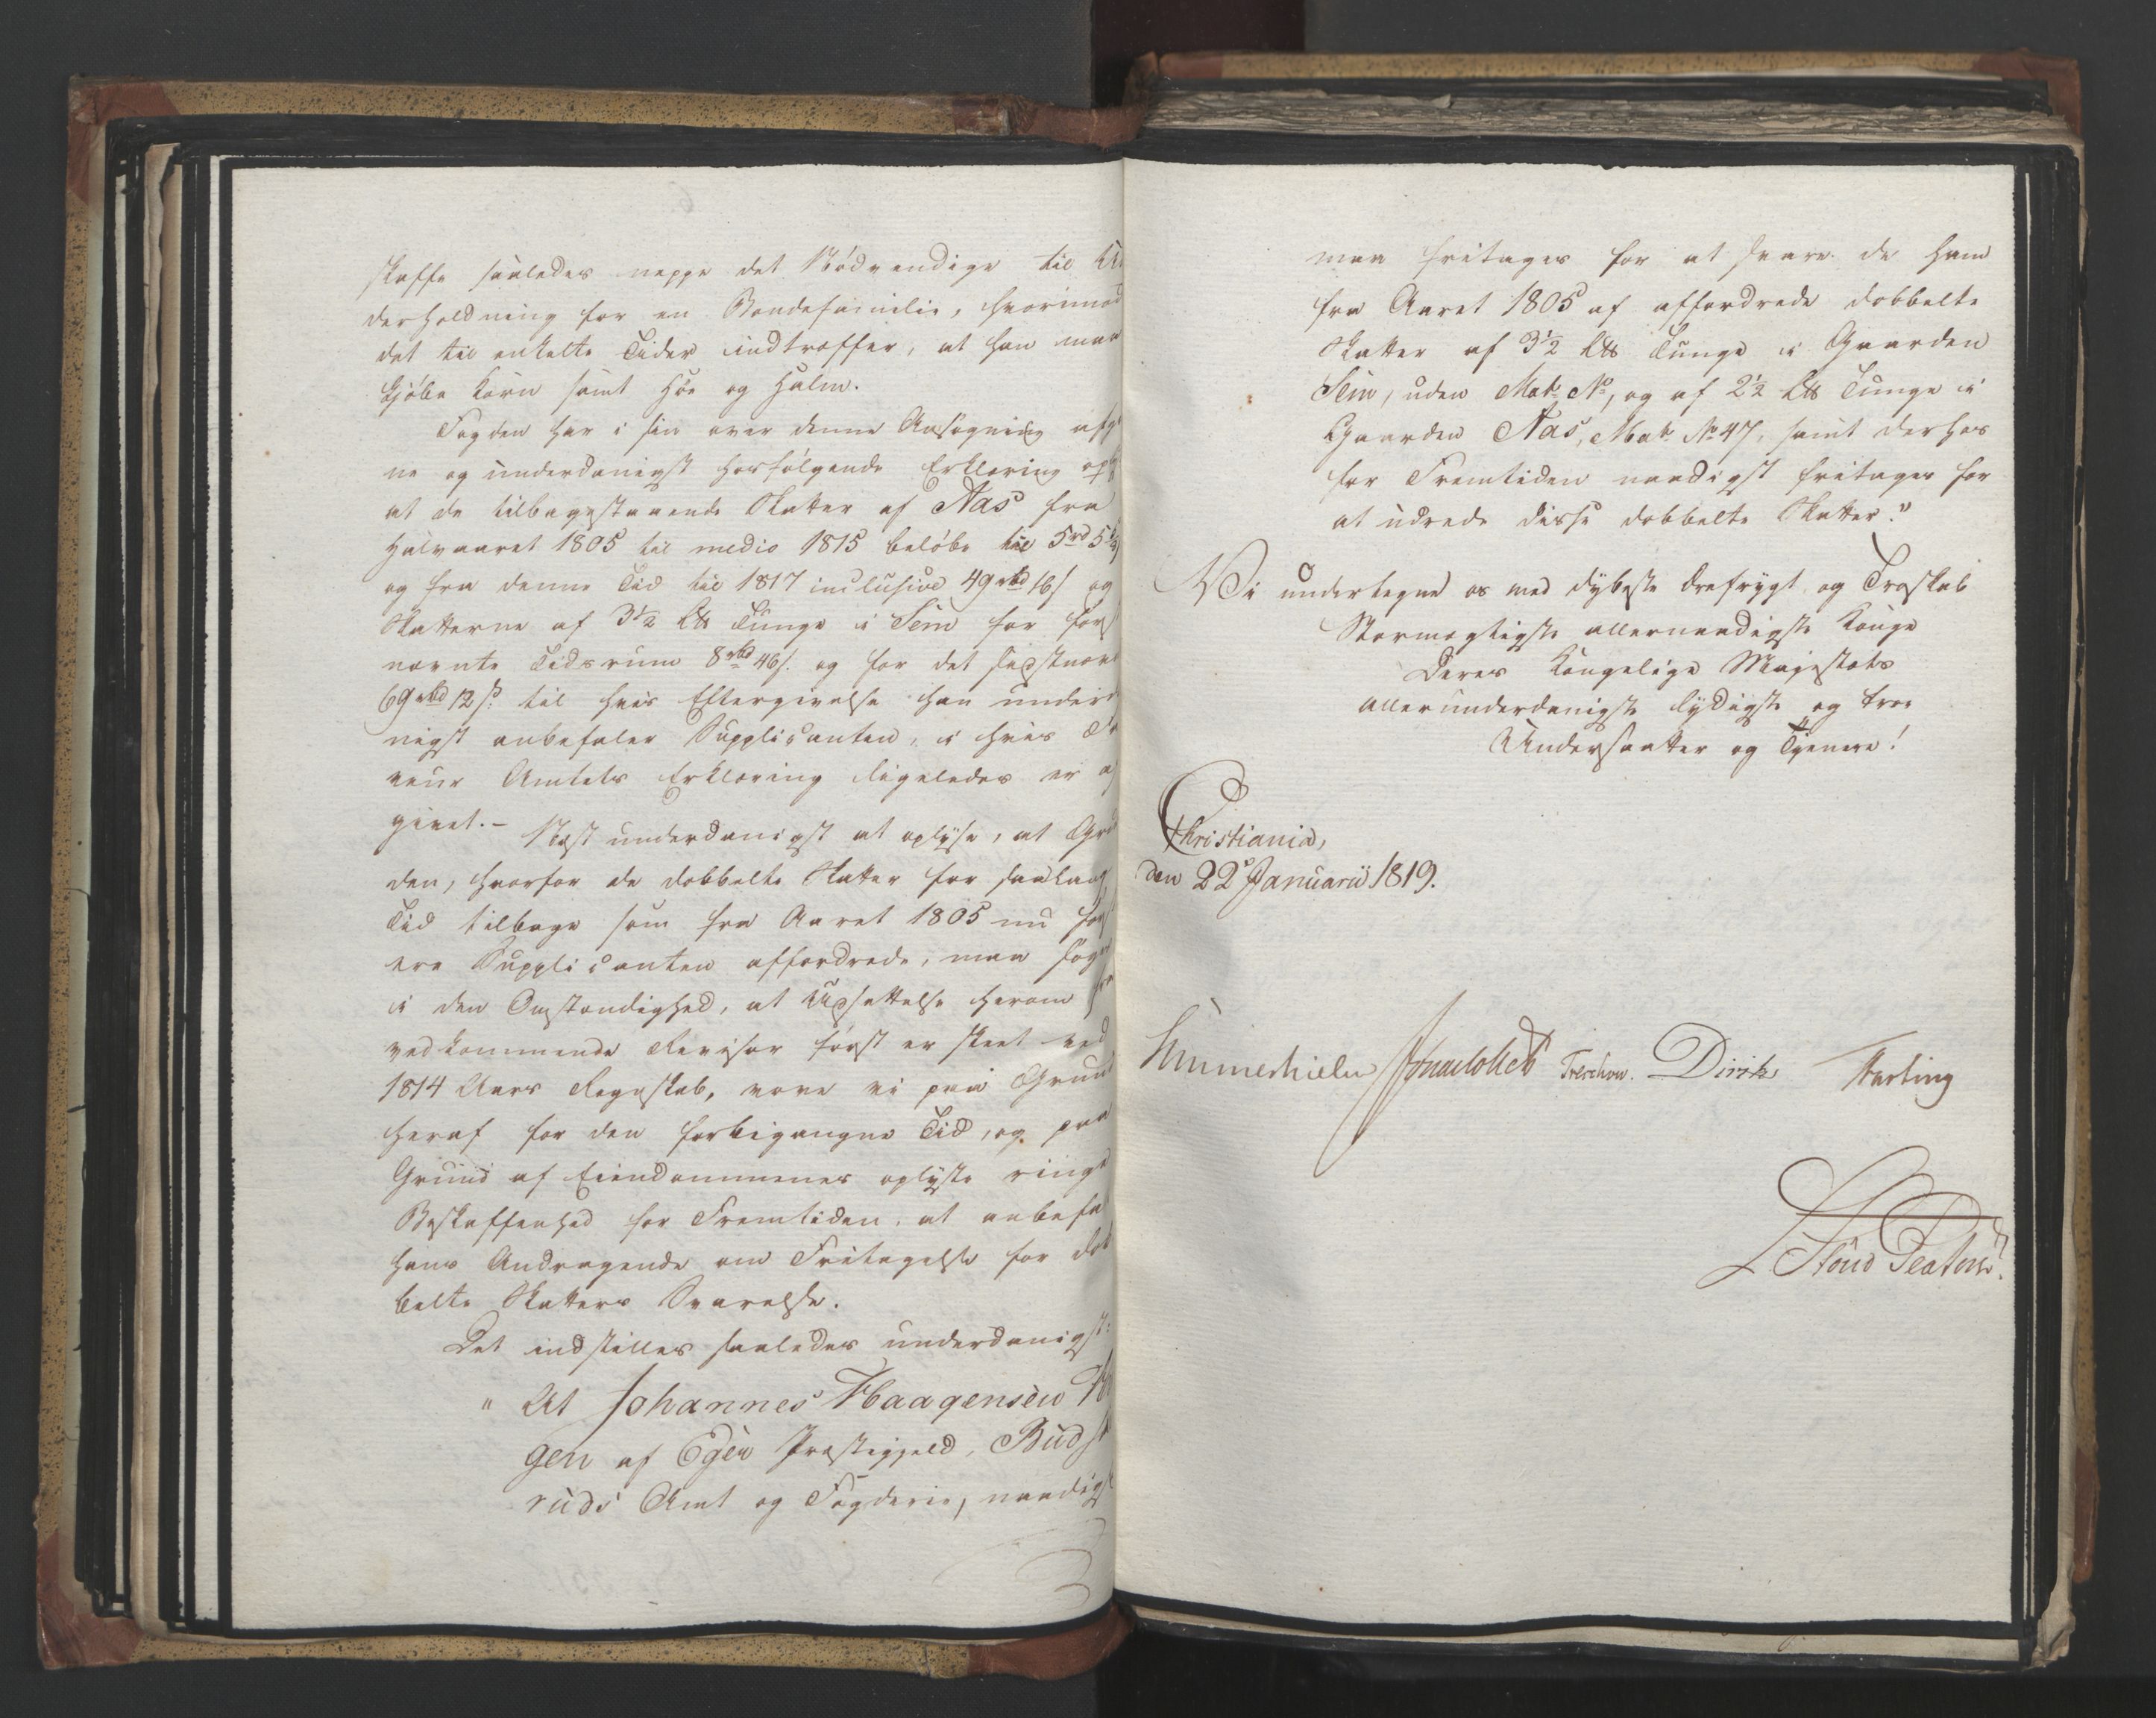 skaffe saaledes neppe det Nødvendige til Un
derholdning for en Bondefamilie, hvorimod
det til enkelte Tider indtræffer, at han maa
kjøbe Korn samt Høe og Halm.
Fogden har i sin over denne Ansøgning afgi
ne og underdanigst hosfølgende Erklæring opl
at de tilbagestaaende Skatter af Næs fra
Halvaaret 1805 til medio 1815 beløbe til 5rd 5
og fra denne Tid til 1817 inclusive 49 rbd 16 s og
Skatterne af 3½ L℔ Tunge i Sem for først
nævnte Tidsrum 8 rbd 46 s. og for det sidstnæv
69 rbd 12 s. til hvis Eftergivelse han underda
nigst anbefaler Supplicanten, i hvis Fa
veur Amtets Erklæring ligeledes er af
givet.–
Næst underdanigst at oplyse, at Grun
den, hvorfor de dobbelte Skatter for saalang
Tid tilbage som fra Aaret 1805 nu først
ere Supplicanten affordrede, maa søges
i den Omstændighed, at Udsættelse herom fra
vedkommende Revisor først er skeet ved
1814 Aars Regnskab, vove vi paa Grund
heraf for den forbigangne Tid, og paa
Grund af Eiendommenes oplyste ringe
Beskaffenhed for Fremtiden, at anbefale
hans Andragende om Fritagelse for dob
belte Skatters Svarelse.
Det indstilles saaledes underdanigst:
" At Johannes Haagensen
gen af Eger Præstegjeld, Budske
ruds Amt og Fogderie, naadigst
maa fritages for at svare de ham
fra Aaret 1805 af affordrede dobbelte
Skatter af 3½ L℔ Tunge i Gaarden
Sem, uden Mat. No, og af 2½ L℔ Tunge i
Gaarden Næs, Mat. No 47, samt derhos
for Fremtiden naadigst fritages for
at udrede disse dobbelte Skatter."
Vi undertegne os med dybeste Ærefrygt og Troskab
Stormægtigste allernaadigste Konge
Deres Kongelige Majestæts
allerunderdanigste lydigste og troe
Undersaatter og Tjenere!
Christiania,
den 22de Januarii 1819.
Sommerhielm Treschow. Diriks